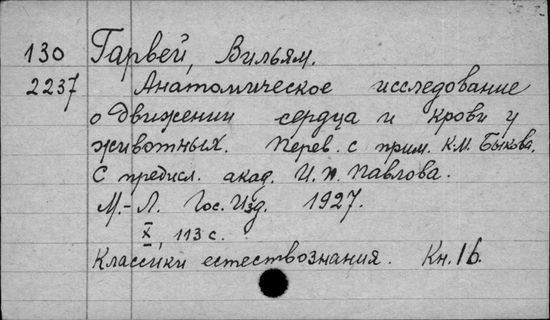 130 Гарвей, Вильям.
2237 Анатомическое исследование
о движении сердца и крови у
животных. Перев. с прим. К.М. Быкова.
С предисл. акад. И.П. Павлова.
М.-Л. Гос. Изд. 1927.
X, 113 с.
Классики естествознания. Кн. 16.